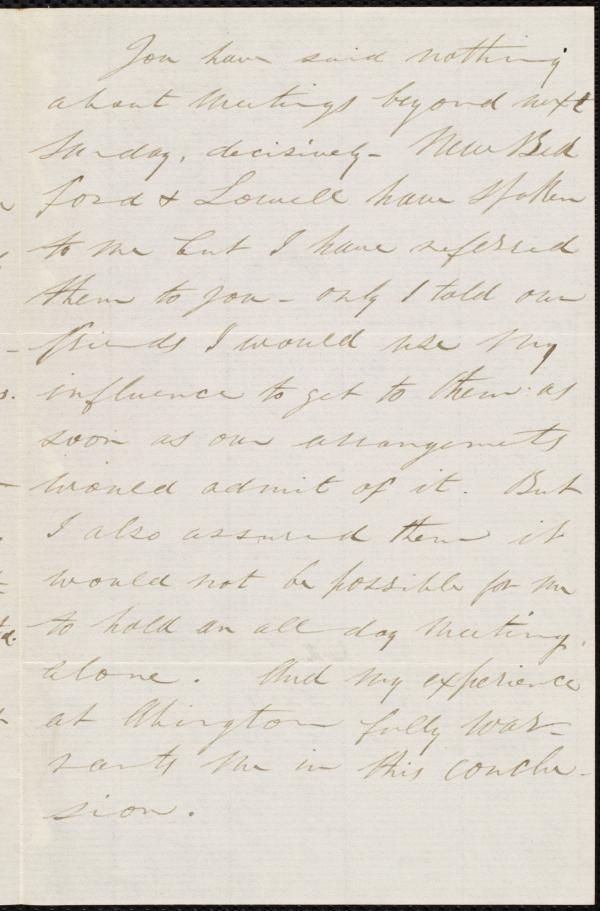 You have said nothing
about meetings beyond next
Sunday, decisively - New Bed
ford & Lowell have spoken
to me but I have referred
them to you - only I told our
friends I would use my
influence to get to them as
soon as our arrangements
would admit of it. But
I also assured them it
would not be possible for me
to hold an all day meeting,
alone. And my experience
at Abington fully war-
rants me in this conclu-
sion.